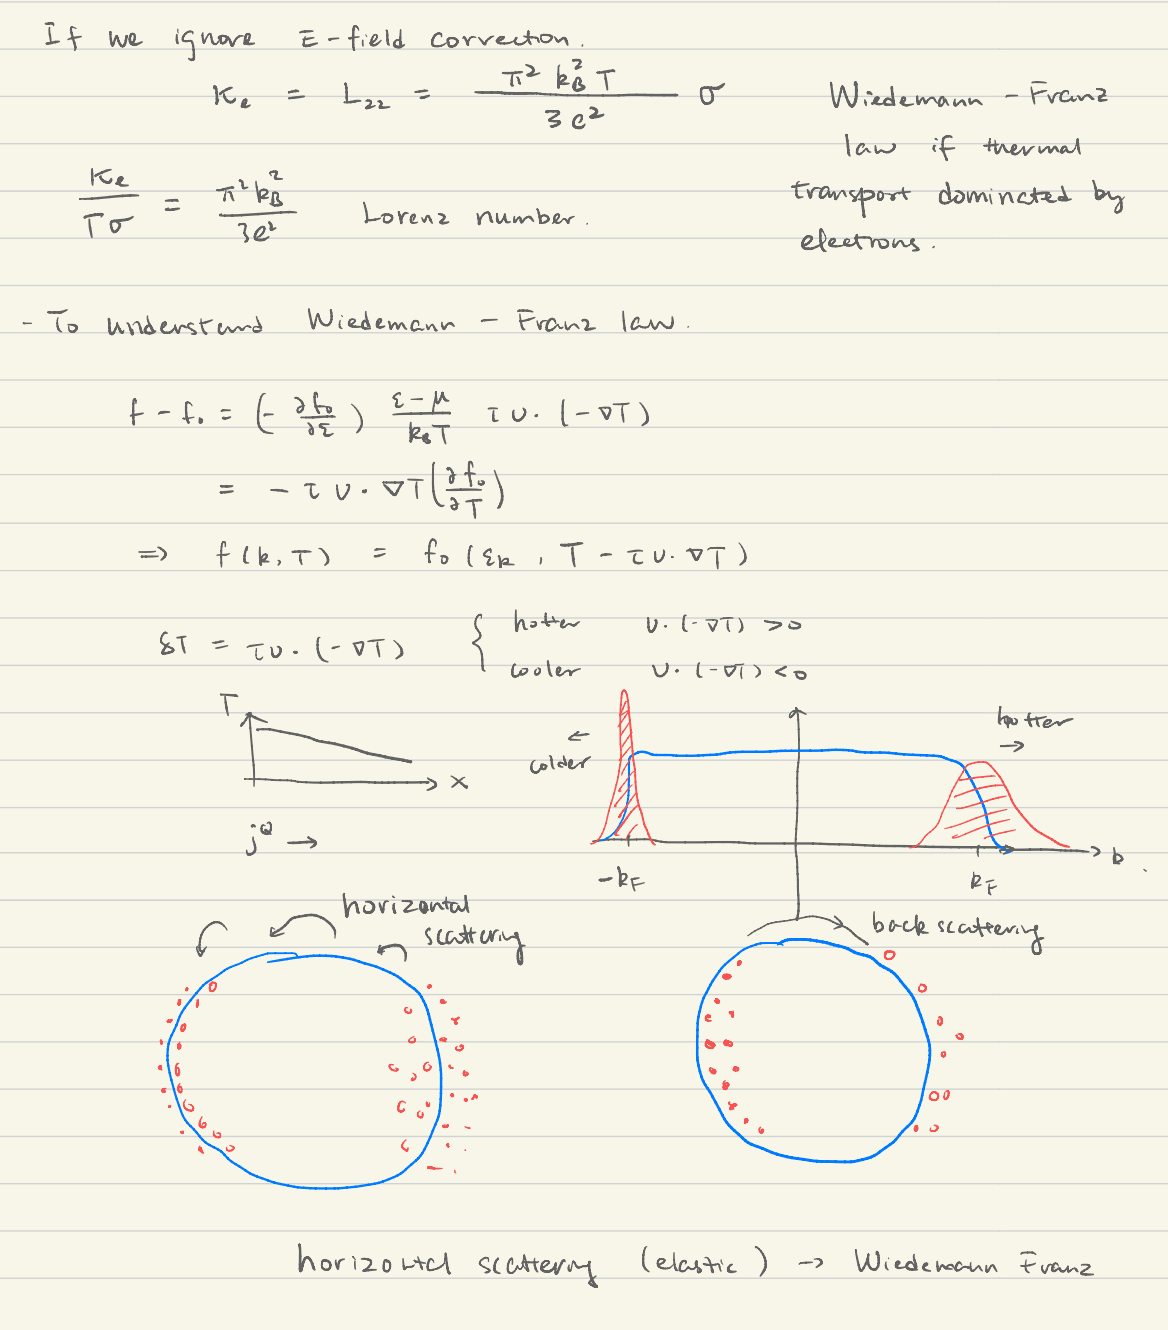 If we ignore E-field correction.
κe = L22 = π² kB² T / 3e² σ
Wiedemann - Franz
law if thermal
transport dominated by
electrons.
κe / Tσ = π² kB² / 3e² Lorenz number.
- To understand Wiedemann - Franz law.
f - f0 = (- ∂f0/∂ε) (ε - μ)/(kBT) τ υ · (-∇T)
= - τ υ · ∇T (∂f0/∂T)
⇒ f(k, T) = f0 (εk, T - τυ·∇T)
δT = τυ·(-∇T) { hotter υ·(-∇T) > 0
cooler υ·(-∇T) < 0
T
x
jQ →
← colder
hotter →
-kF
kF
k
horizontal
scattering
back scattering
horizontal scattering (elastic) → Wiedemann Franz